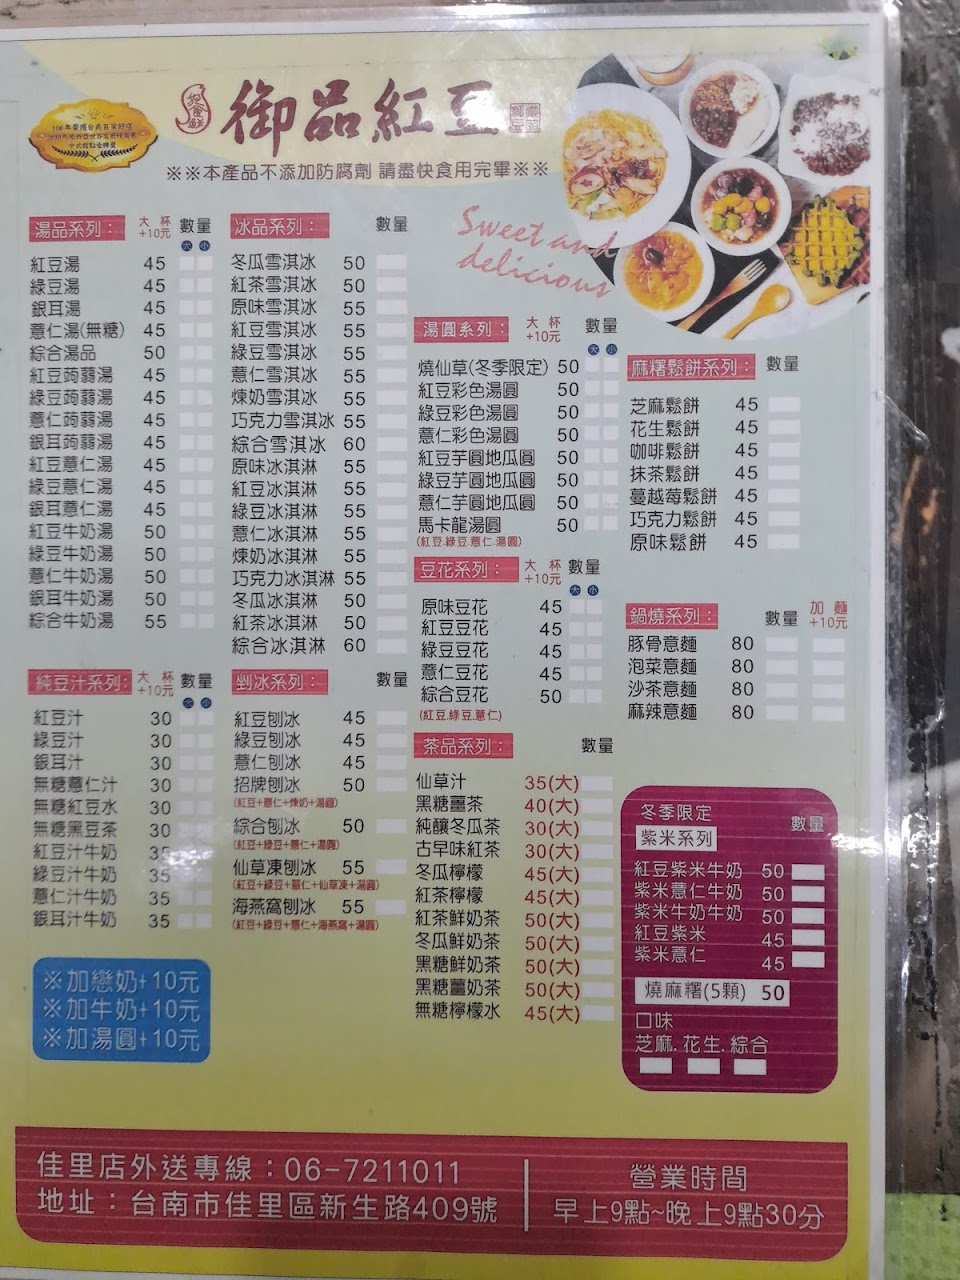 御品紅豆
※※本產品不添加防腐劑 請盡快食用完畢※※
Sweet and
delicious
湯品系列： 大杯+10元 數量
大 小
紅豆湯 45
綠豆湯 45
銀耳湯 45
薏仁湯(無糖) 45
綜合湯品 50
紅豆蒟蒻湯 45
綠豆蒟蒻湯 45
薏仁蒟蒻湯 45
銀耳蒟蒻湯 45
紅豆薏仁湯 45
綠豆薏仁湯 45
銀耳薏仁湯 45
紅豆牛奶湯 50
綠豆牛奶湯 50
薏仁牛奶湯 50
銀耳牛奶湯 50
綜合牛奶湯 55
純豆汁系列: 大杯+10元 數量
大 小
紅豆汁 30
綠豆汁 30
銀耳汁 30
無糖薏仁汁 30
無糖紅豆水 30
無糖黑豆茶 30
紅豆汁牛奶 35
綠豆汁牛奶 35
薏仁汁牛奶 35
銀耳汁牛奶 35
※加戀奶+10元
※加牛奶+10元
※加湯圓+10元
冰品系列： 數量
冬瓜雪淇冰 50
紅茶雪淇冰 50
原味雪淇冰 55
紅豆雪淇冰 55
綠豆雪淇冰 55
薏仁雪淇冰 55
煉奶雪淇冰 55
巧克力雪淇冰 55
綜合雪淇冰 60
原味冰淇淋 55
紅豆冰淇淋 55
綠豆冰淇淋 55
薏仁冰淇淋 55
煉奶冰淇淋 55
巧克力冰淇淋 55
冬瓜冰淇淋 50
紅茶冰淇淋 50
綜合冰淇淋 60
剉冰系列： 數量
紅豆刨冰 45
綠豆刨冰 45
薏仁刨冰 45
招牌刨冰 50
(紅豆+薏仁+煉奶+湯圓)
綜合刨冰 50
(紅豆+綠豆+薏仁+湯圓)
仙草凍刨冰 55
(紅豆+綠豆+薏仁+仙草凍+湯圓)
海燕窩刨冰 55
(紅豆+綠豆+薏仁+海燕窩+湯圓)
湯圓系列： 大杯+10元 數量
大 小
燒仙草(冬季限定) 50
紅豆彩色湯圓 50
綠豆彩色湯圓 50
薏仁彩色湯圓 50
紅豆芋圓地瓜圓 50
綠豆芋圓地瓜圓 50
薏仁芋圓地瓜圓 50
馬卡龍湯圓 50
(紅豆.綠豆.薏仁.湯圓)
豆花系列： 大杯+10元 數量
大 小
原味豆花 45
紅豆豆花 45
綠豆豆花 45
薏仁豆花 45
綜合豆花 50
(紅豆.綠豆.薏仁)
茶品系列： 數量
仙草汁 35(大)
黑糖薑茶 40(大)
純釀冬瓜茶 30(大)
古早味紅茶 30(大)
冬瓜檸檬 45(大)
紅茶檸檬 45(大)
紅茶鮮奶茶 50(大)
冬瓜鮮奶茶 50(大)
黑糖鮮奶茶 50(大)
黑糖薑奶茶 50(大)
無糖檸檬水 45(大)
麻糬鬆餅系列： 數量
芝麻鬆餅 45
花生鬆餅 45
咖啡鬆餅 45
抹茶鬆餅 45
蔓越莓鬆餅 45
巧克力鬆餅 45
原味鬆餅 45
鍋燒系列： 數量 加麵+10元
豚骨意麵 80
泡菜意麵 80
沙茶意麵 80
麻辣意麵 80
冬季限定
紫米系列 數量
紅豆紫米牛奶 50
紫米薏仁牛奶 50
紫米牛奶牛奶 50
紅豆紫米 45
紫米薏仁 45
燒麻糬(5顆) 50
口味
芝麻. 花生. 綜合
佳里店外送專線：06-7211011
地址：台南市佳里區新生路409號
營業時間
早上9點~晚上9點30分